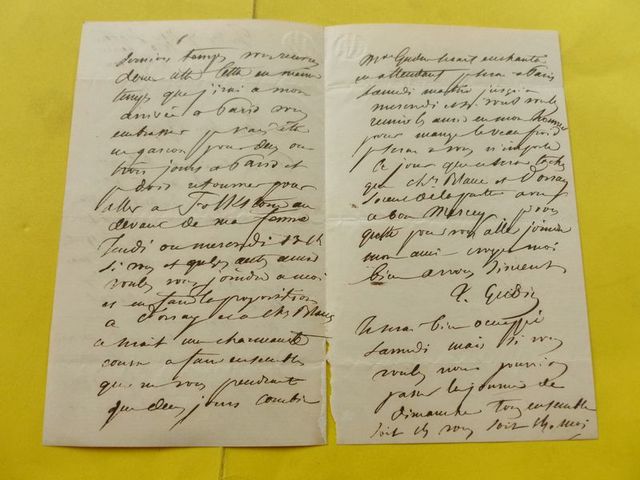 derniers temps vous recevrez
donc cette lettre en même
temps que j'irai a mon
arrivée a Paris vous
embrasser je vais être
en garçon pour deux ou
trois jours a Paris et
je dois retourner pour
aller a Folkstone au
devant de ma femme
Jeudi ou mercredi
si vous et
voulez vous joindre a moi
et en faire la proposition
a Dorsay et a Ch Blanc
ce serait une charmante
course a faire ensemble
que ne vous prendrait
que deux jours combien
Mme Gudin serait enchantée
en attendant je serai a Paris
Samedi matin jusqu'a
mercredi et si vous voulez
réunir
pour manger le veau froid
je serai a vous n'importe
ce jour que ce sera
que Chs Blanc et Dorsay
soient de la partie avec
ce bon Mercey je vous
quitte pour vous aller joindre
mon ami croyez moi
bien a vous sincère
T. Gudin
Je serai bien occupé
Samedi mais si vous
voulez nous pourrions
passer la journée de
dimanche tous ensemble
soit chez vous soit chez moi